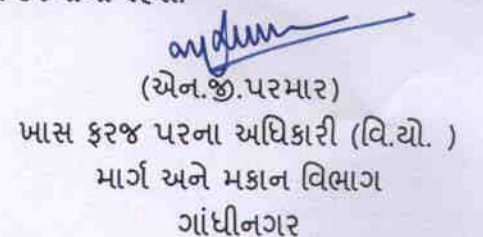 (એન.જી.પરમાર)
ખાસ ફરજ પરના અધિકારી (વિ.યો. )
માર્ગ અને મકાન વિભાગ
ગાંધીનગર